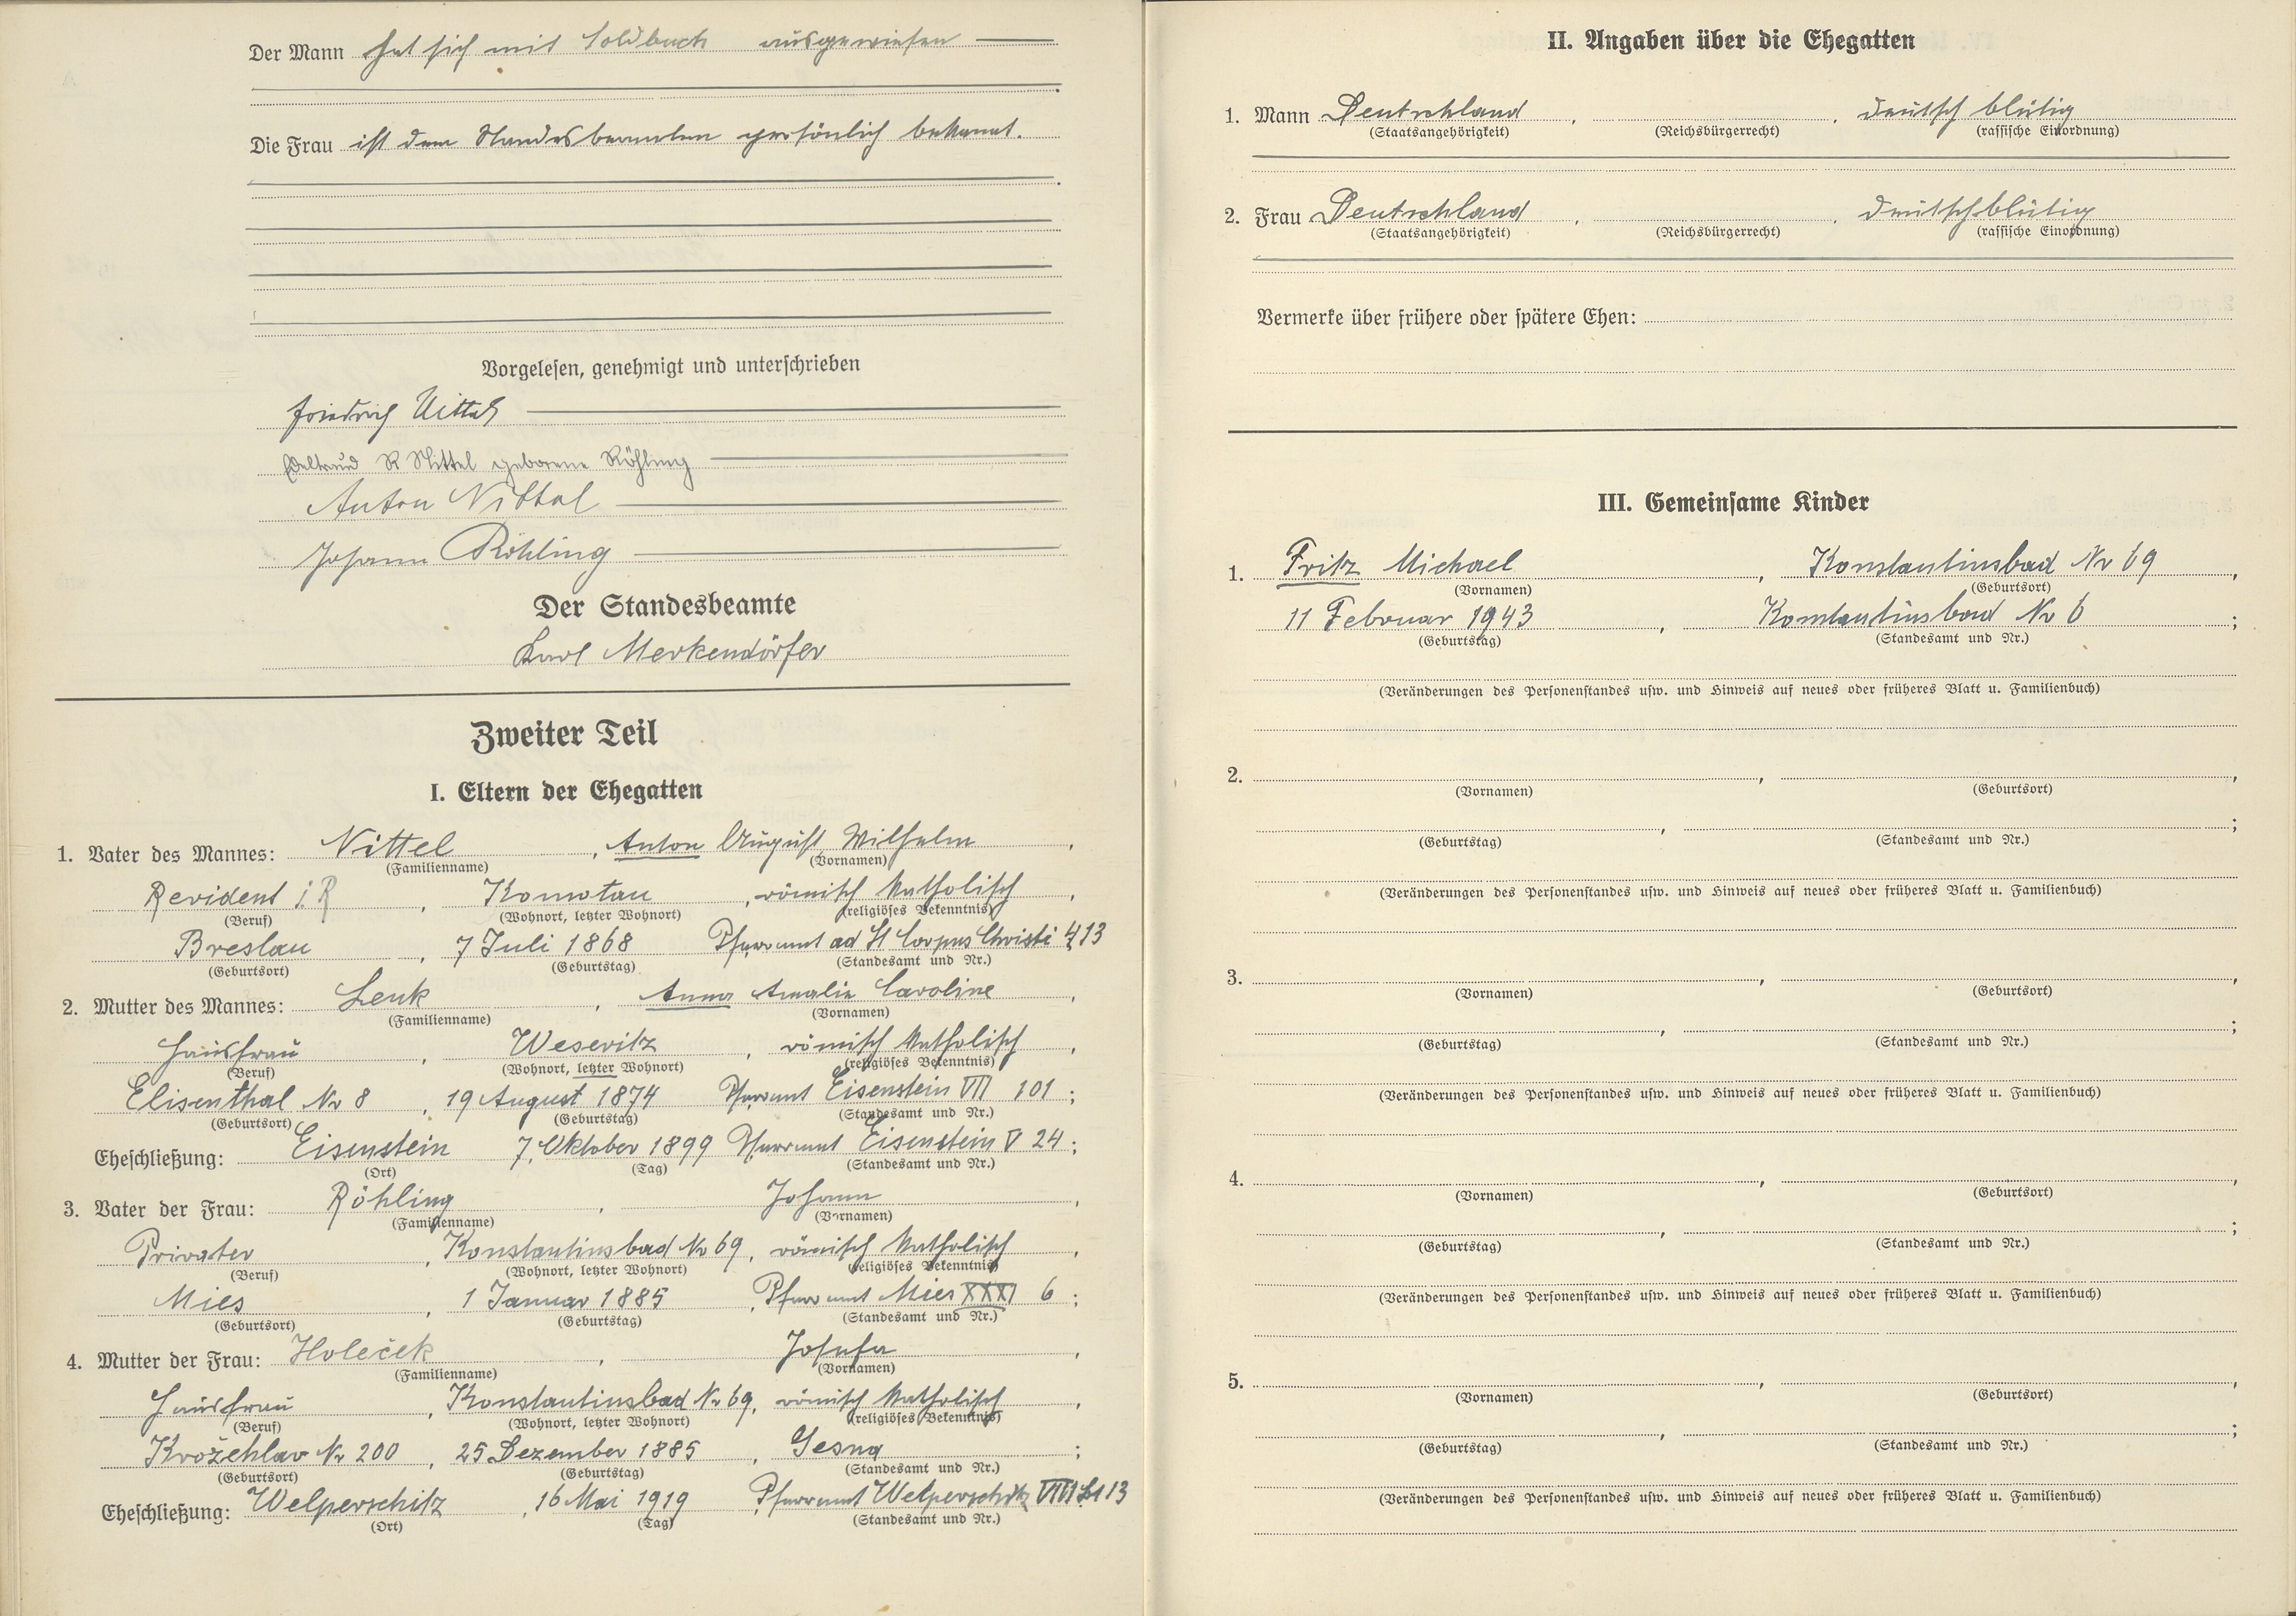 Der Mann hat sich mit Soldbuch ausgewiesen
Die Frau ist dem Standesbeamten persönlich bekannt.
Vorgelesen, genehmigt und unterschrieben
Friedrich Nittel
R Nittel geborene Röhling
Anton Nittel
Johann Röhling
Der Standesbeamte
Karl Merkendörfer
Zweiter Teil
I. Eltern der Ehegatten
1. Vater des Mannes: Nittel, Anton August Wilhelm,
(Familienname) (Vornamen)
Revident i R, Komotau, römisch katholisch,
(Beruf) (Wohnort, letzter Wohnort) (religiöses Bekenntnis)
Breslau, 7 Juli 1868 Pfarramt ad St Corpus Christi 413
(Geburtsort) (Geburtstag) (Standesamt und Nr.)
2. Mutter des Mannes: Lenk, Anna Amalie Caroline,
(Familienname) (Vornamen)
Hausfrau, Weseritz, römisch katholisch,
(Beruf) (Wohnort, letzter Wohnort) (religiöses Bekenntnis)
Elisenthal Nr 8, 19 August 1874 Pfarramt Eisenstein VII 101;
(Geburtsort) (Geburtstag) (Standesamt und Nr.)
Eheschließung: Eisenstein 7. Oktober 1899 Pfarramt Eisenstein V 24;
(Ort) (Tag) (Standesamt und Nr.)
3. Vater der Frau: Röhling, Johann,
(Familienname) (Vornamen)
Privater, Konstantinsbad Nr 69, römisch katholisch,
(Beruf) (Wohnort, letzter Wohnort) (religiöses Bekenntnis)
Mies, 1 Januar 1885, Pfarramt Mies XXXI 6;
(Geburtsort) (Geburtstag) (Standesamt und Nr.)
4. Mutter der Frau: Holeček, Josefa,
(Familienname) (Vornamen)
Hausfrau, Konstantinsbad Nr 69, römisch katholisch,
(Beruf) (Wohnort, letzter Wohnort) (religiöses Bekenntnis)
Krožehlav Nr 200, 25 Dezember 1885, Gesna;
(Geburtsort) (Geburtstag) (Standesamt und Nr.)
Eheschließung: Welperschitz, 16 Mai 1919, Pfarramt Welperschitz VIII 13
(Ort) (Tag) (Standesamt und Nr.)
II. Angaben über die Ehegatten
1. Mann Deutschland, , deutsch blütig
(Staatsangehörigkeit) (Reichsbürgerrecht) (rassische Einordnung)
2. Frau Deutschland, , deutschblütig
(Staatsangehörigkeit) (Reichsbürgerrecht) (rassische Einordnung)
Vermerke über frühere oder spätere Ehen:
III. Gemeinsame Kinder
1. Fritz Michael, Konstantinsbad Nr 69,
(Vornamen) (Geburtsort)
11 Februar 1943, Konstantinsbad Nr 6;
(Geburtstag) (Standesamt und Nr.)
(Veränderungen des Personenstandes usw. und Hinweis auf neues oder früheres Blatt u. Familienbuch)
2. , ,
(Vornamen) (Geburtsort)
, ;
(Geburtstag) (Standesamt und Nr.)
(Veränderungen des Personenstandes usw. und Hinweis auf neues oder früheres Blatt u. Familienbuch)
3. , ,
(Vornamen) (Geburtsort)
, ;
(Geburtstag) (Standesamt und Nr.)
(Veränderungen des Personenstandes usw. und Hinweis auf neues oder früheres Blatt u. Familienbuch)
4. , ,
(Vornamen) (Geburtsort)
, ;
(Geburtstag) (Standesamt und Nr.)
(Veränderungen des Personenstandes usw. und Hinweis auf neues oder früheres Blatt u. Familienbuch)
5. , ,
(Vornamen) (Geburtsort)
, ;
(Geburtstag) (Standesamt und Nr.)
(Veränderungen des Personenstandes usw. und Hinweis auf neues oder früheres Blatt u. Familienbuch)